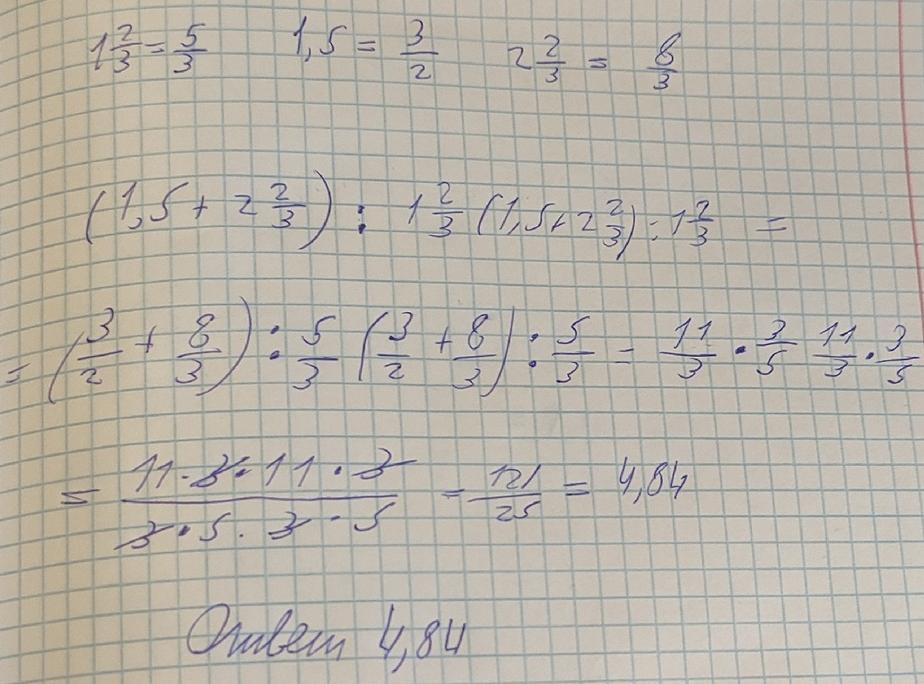 1 2/3 = 5/3 1,5 = 3/2 2 2/3 = 8/3
(1,5 + 2 2/3) : 1 2/3 (1,5 + 2 2/3) : 1 2/3 =
= (3/2 + 8/3) : 5/3 (3/2 + 8/3) : 5/3 = 11/3 · 3/5 11/3 · 3/5
= 11 · 3 · 11 · 3 / 3 · 5 · 3 · 5 = 121/25 = 4,84
Ответ 4,84